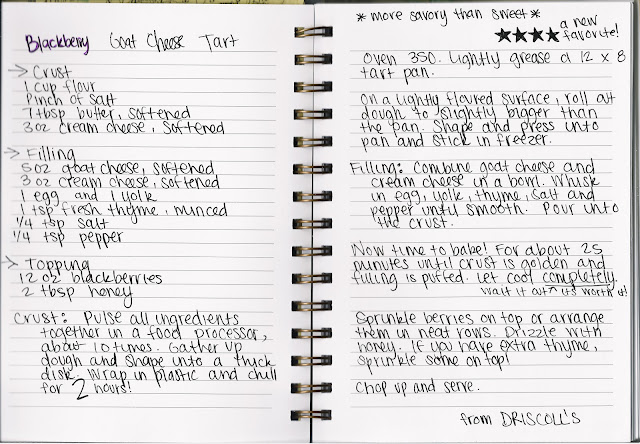 Blackberry Goat Cheese Tart
→ Crust
1 cup flour
Pinch of salt
7 tbsp butter, softened
3 oz cream cheese, softened
→ Filling
5 oz goat cheese, softened
3 oz cream cheese, softened
1 egg and 1 yolk
1 tsp fresh thyme, minced
1/4 tsp salt
1/4 tsp pepper
→ Topping
12 oz blackberries
2 tbsp honey
Crust: Pulse all ingredients
together in a food processor,
about 10 times. Gather up
dough and shape into a thick
disk. Wrap in plastic and chill
for 2 hours!
* more savory than sweet *
★★★★ a new
favorite!
Oven 350. Lightly grease a 12 x 8
tart pan.
On a lightly floured surface, roll out
dough to slightly bigger than
the pan. Shape and press into
pan and stick in freezer.
Filling: Combine goat cheese and
cream cheese in a bowl. Whisk
in egg, yolk, thyme, salt and
pepper until smooth. Pour into
the crust.
Now time to bake! For about 25
minutes until crust is golden and
filling is puffed. Let cool completely.
Wait it out ^ it's worth it!
Sprinkle berries on top or arrange
them in neat rows. Drizzle with
honey. If you have extra thyme,
sprinkle some on top!
Chop up and serve.
from DRISCOLL'S